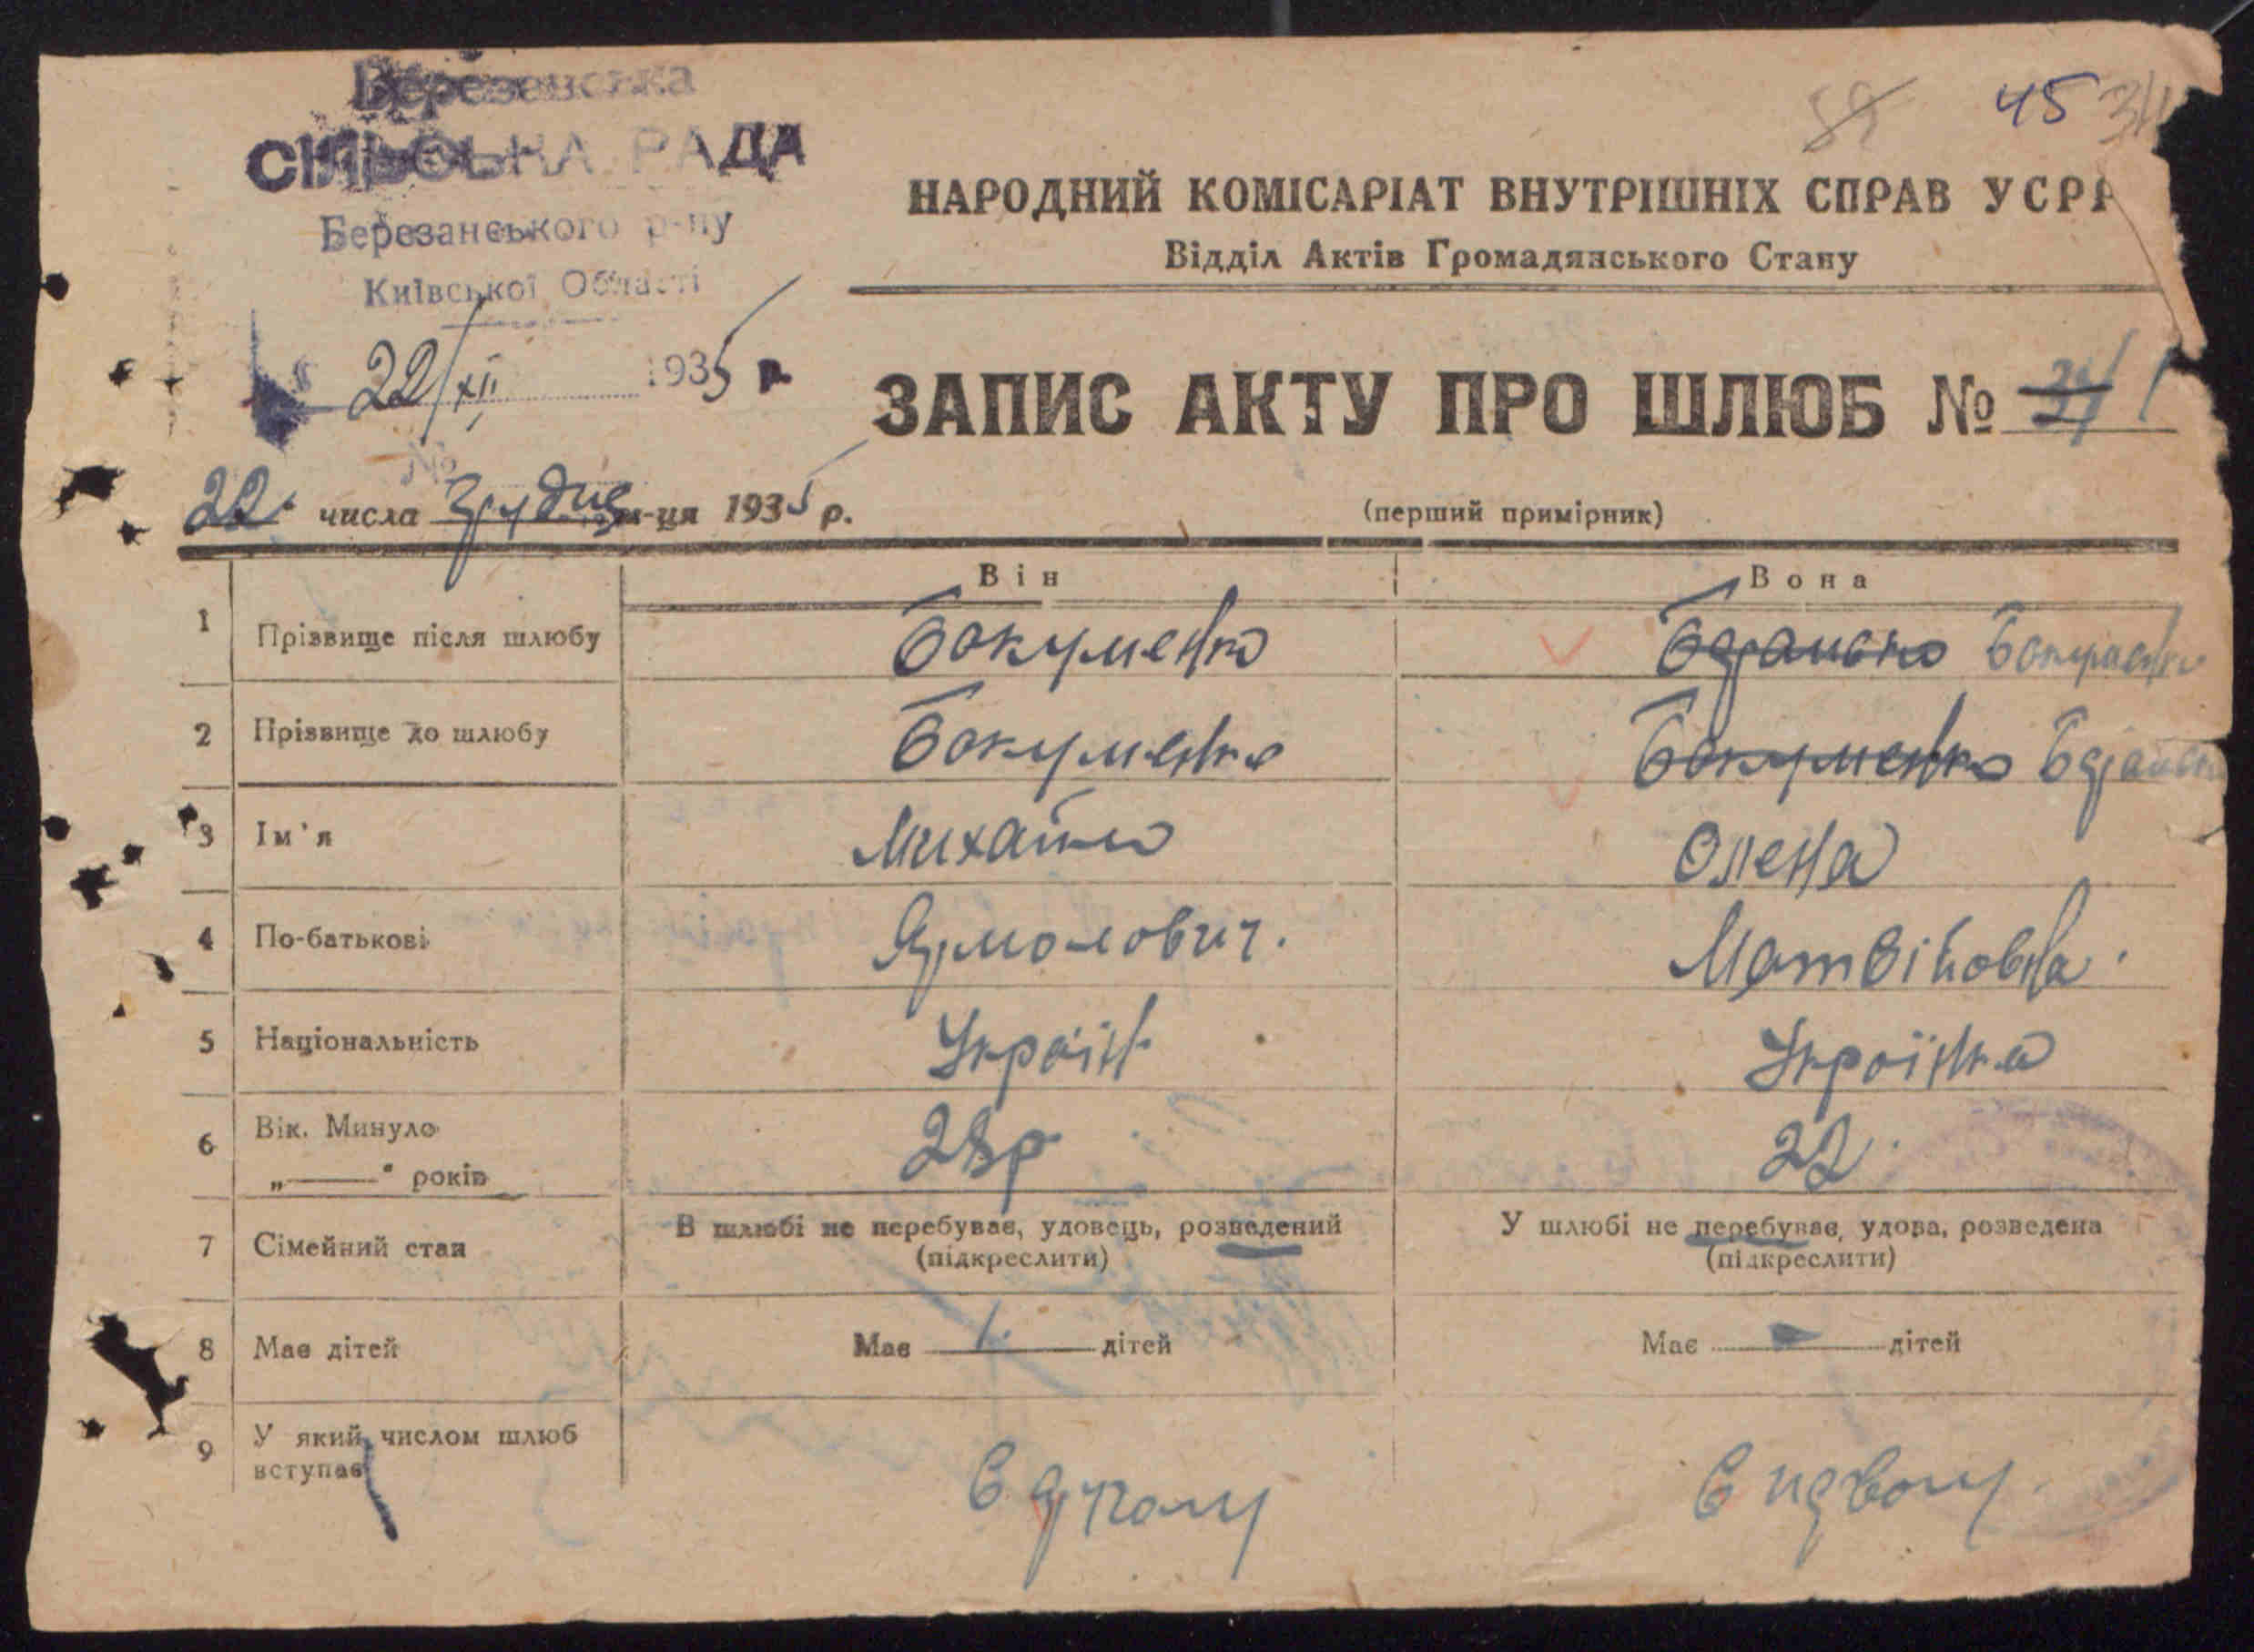 Березанська
СІЛЬСЬКА РАДА
Березанського р-ну
Київської Області
22/XII 1935 р.
№
45
НАРОДНИЙ КОМІСАРІАТ ВНУТРІШНІХ СПРАВ УСРР
Відділ Актів Громадянського Стану
ЗАПИС АКТУ ПРО ШЛЮБ №
22 числа Грудня м-ця 1935 р.
(перший примірник)
Він Вона
1 Прізвище після шлюбу Бакуменко Бакуменко
2 Прізвище до шлюбу Бакуменко
3 Ім'я Михайло Олена
4 По-батькові Ярмолович. Матвійовна.
5 Національність Україн Українка
6 Вік. Минуло 28р 22
„——“ років
7 Сімейний стан В шлюбі не перебуває, удовець, розведений У шлюбі не перебуває, удова, розведена
(підкреслити) (підкреслити)
8 Має дітей Має 1. дітей Має — дітей
9 У який числом шлюб
вступає